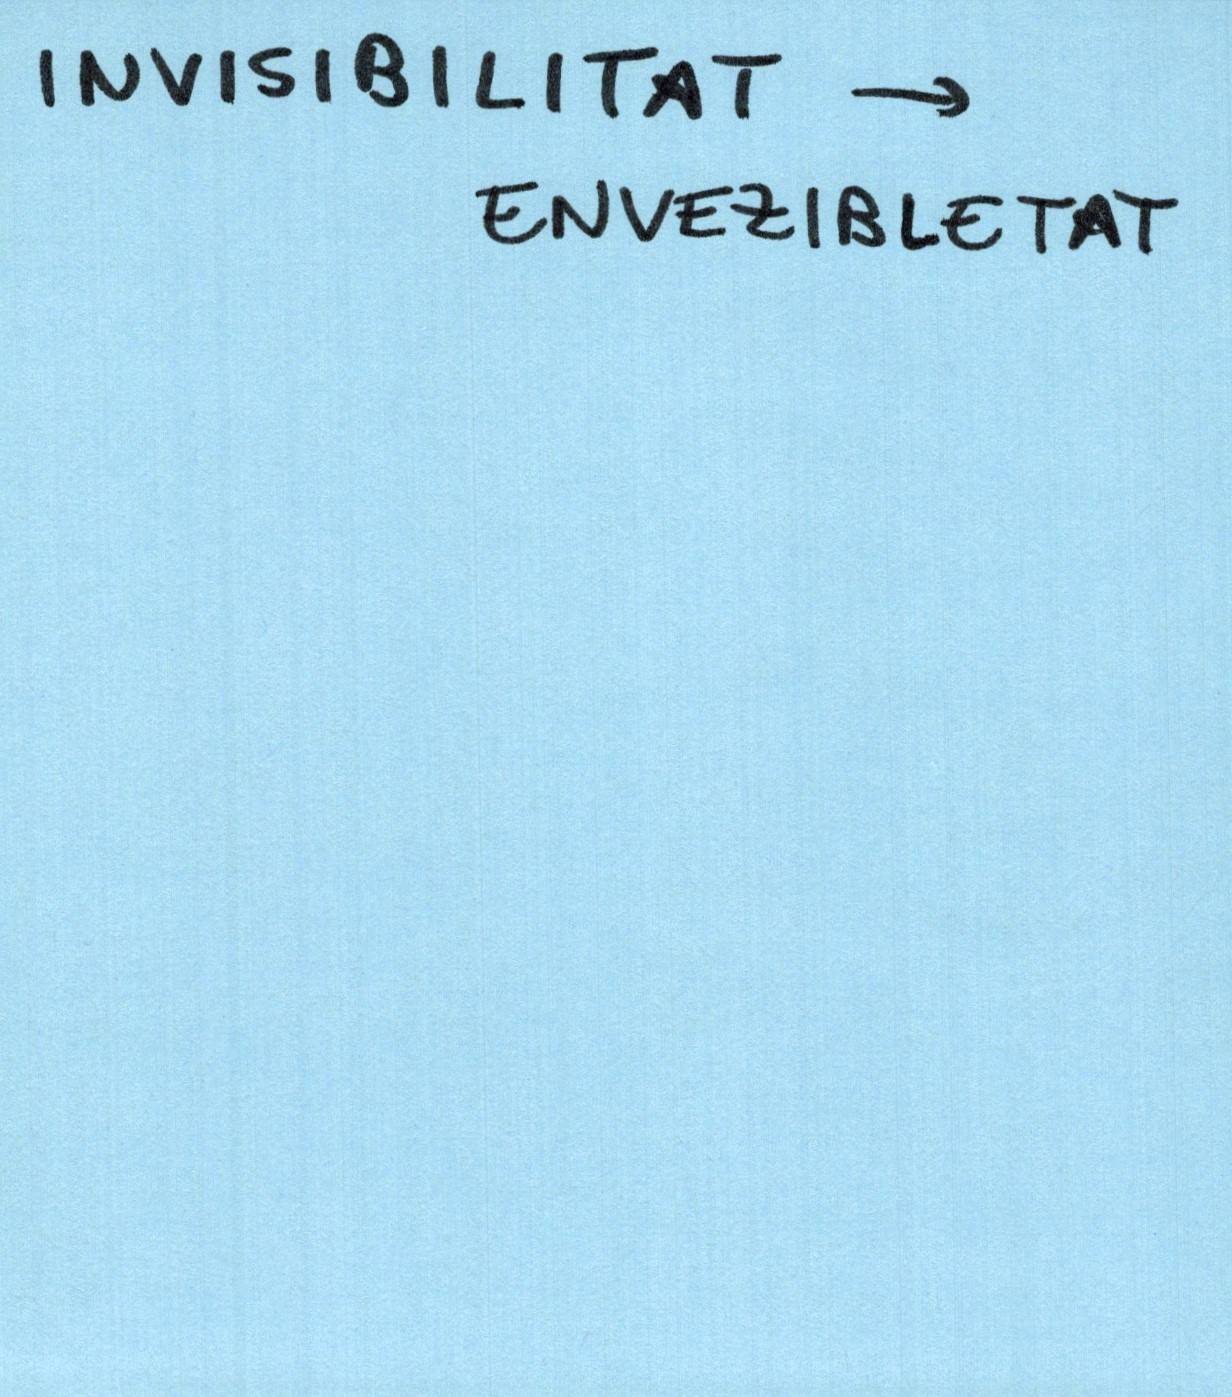 INVISIBILITAT →
ENVEZIBLETAT